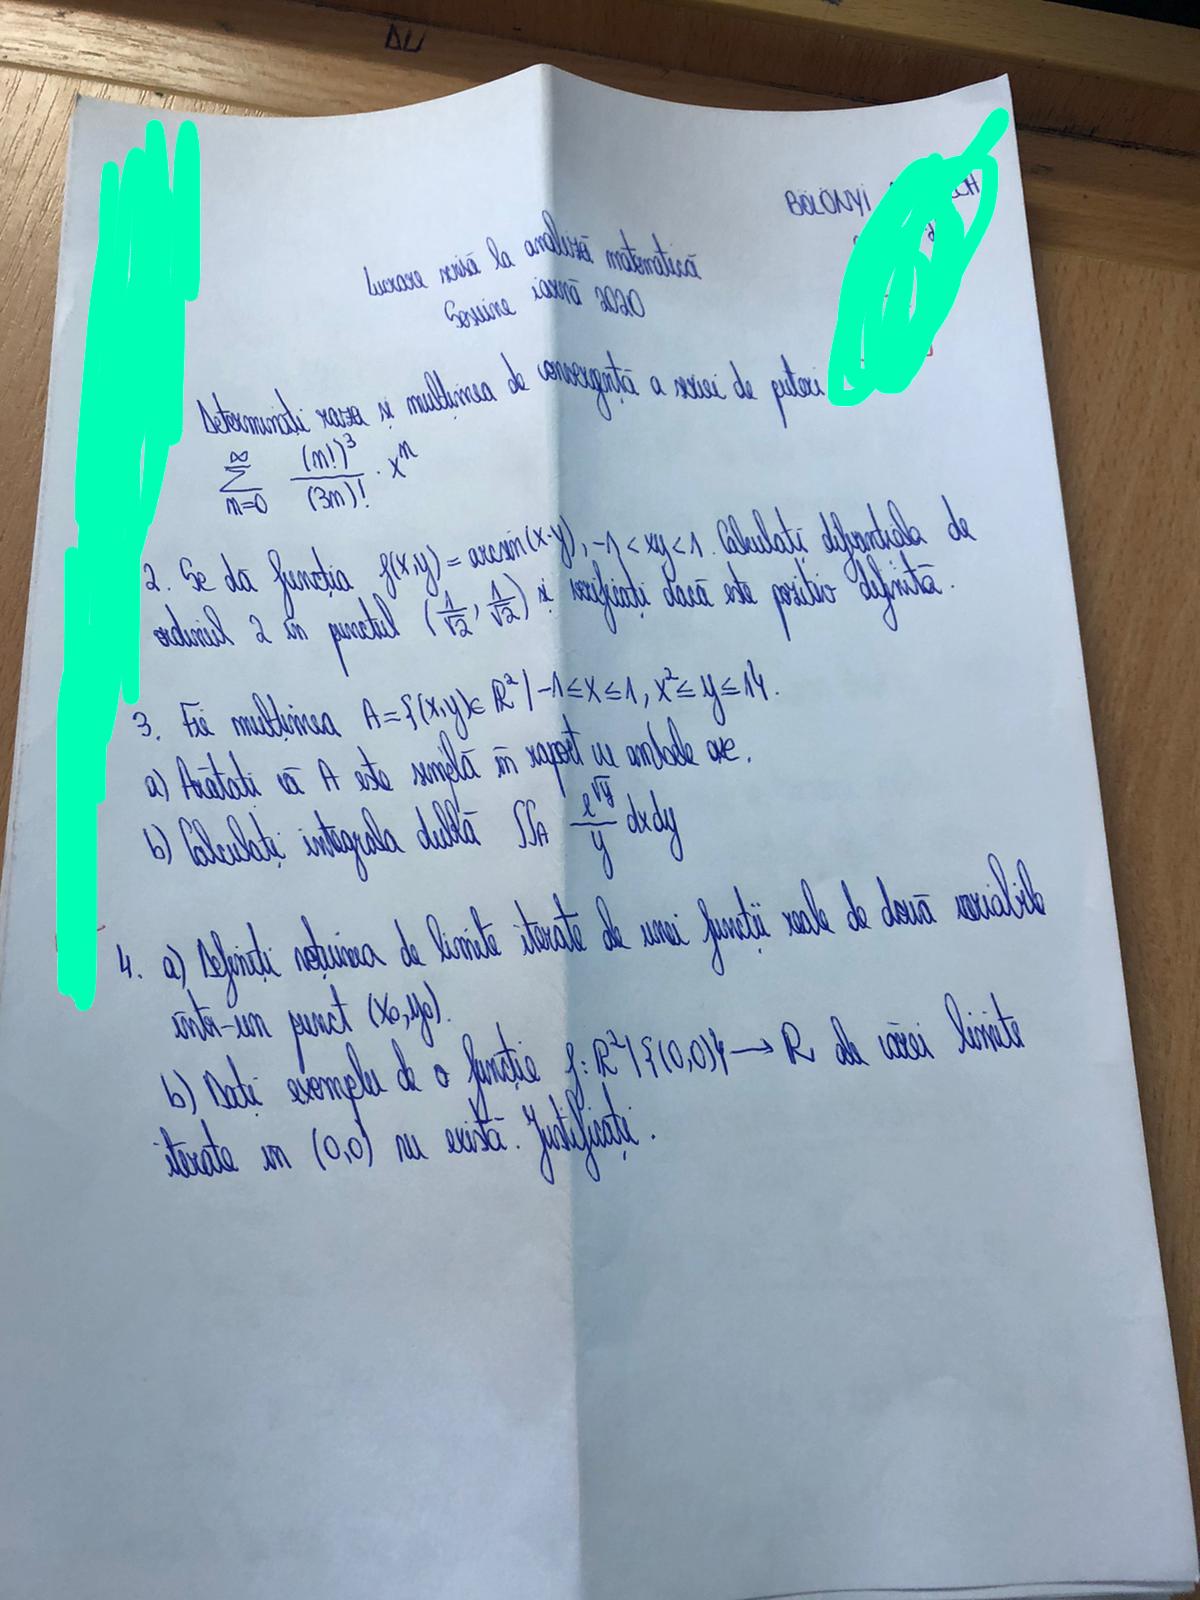 BÖLÖNYI
Lucrare scrisă la analiză matematică
Sesiune iarnă 2020
Determinați raza și mulțimea de convergență a seriei de puteri
∞
∑ (n!)³/(3n)! · xⁿ
n=0
2. Se dă funcția f(x,y) = arcsin(x·y), -1 < xy < 1. Calculați diferențiala de
ordinul 2 în punctul (1/√2, 1/√2) și verificați dacă este pozitiv definită.
3. Fie mulțimea A = {(x,y) ∈ ℝ² / -1 ≤ x ≤ 1, x² ≤ y ≤ 1}.
a) Arătați că A este simplă în raport cu ambele axe.
b) Calculați integrala dublă ∫∫A e^√y/y dxdy
4. a) Definiți noțiunea de limite iterate de unei funcții reale de două variabile
într-un punct (x₀,y₀).
b) Dați exemplu de o funcție f: ℝ² \ {(0,0)} → ℝ de cărei limite
iterate în (0,0) nu există. Justificați.